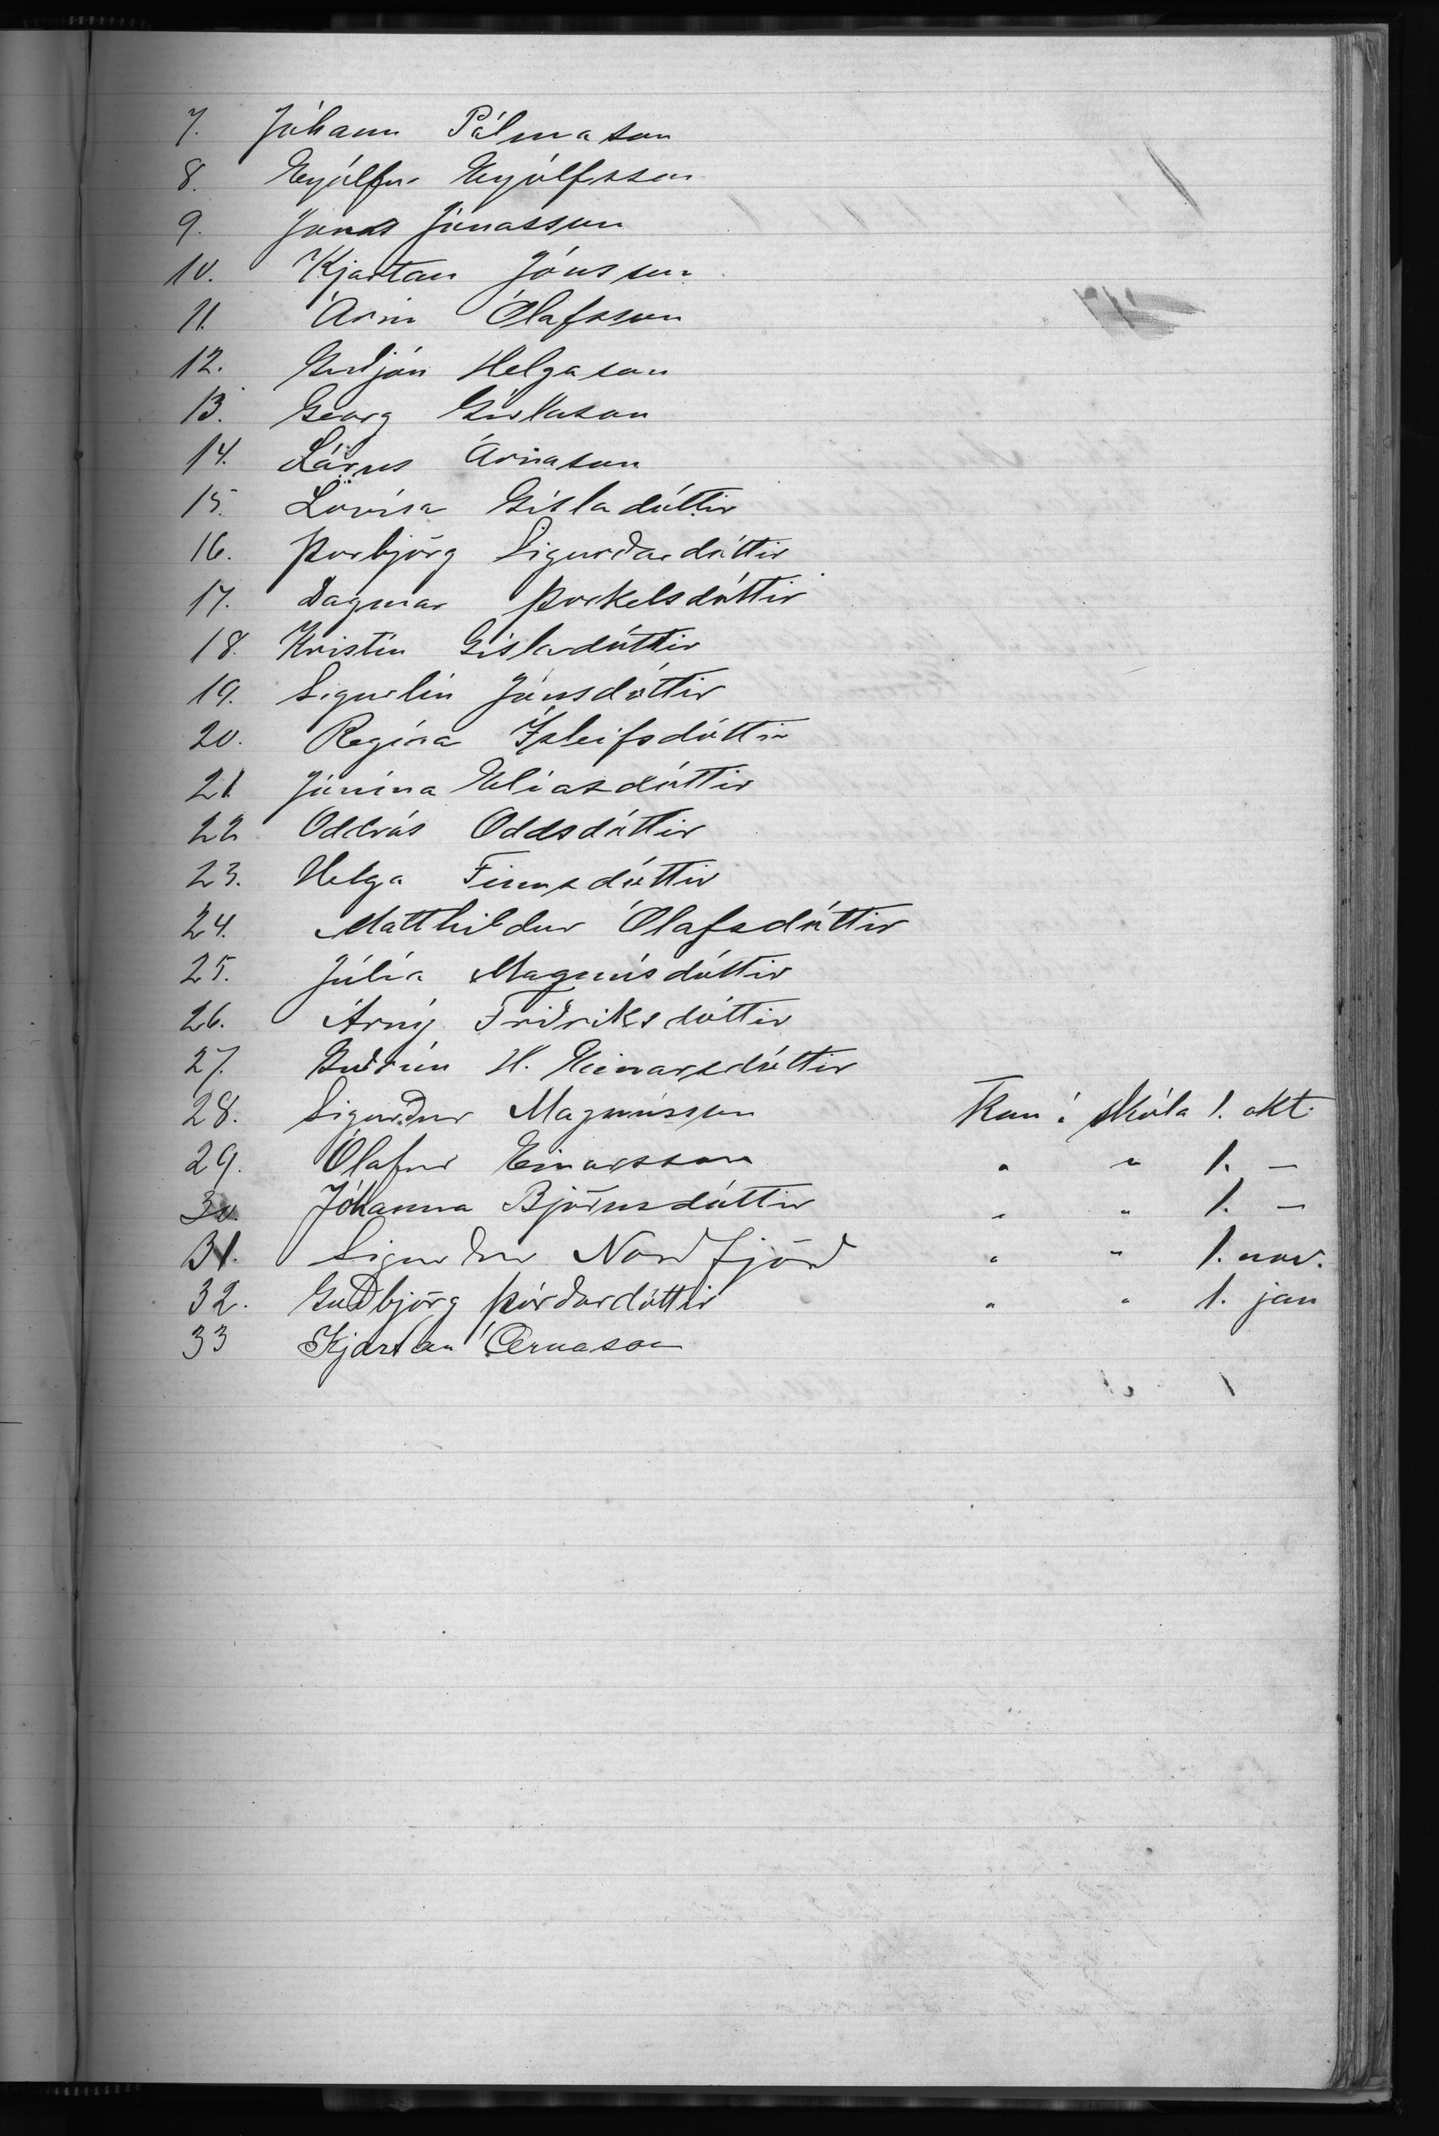 7. Jóhann Pálmason
8. Eyjólfur Eyjólfsson
9. Jónas Jónasson
10. Kjartan Jónsson
11. Árni Ólafsson
12. Guðjón Helgason
13. Georg Gíslason
14. Lárus Árnason
15. Lovísa Gísladóttir
16. Þorbjörg Sigurðardóttir
17. Dagmar Þorkelsdóttir
18. Kristín Gísladóttir
19. Sigurlín Jónsdóttir
20. Regína Ísleifsdóttir
21. Jónína Elíasdóttir
22. Oddrós Oddsdóttir
23. Helga Finnsdóttir
24. Matthildur Ólafsdóttir
25. Júlía Magnúsdóttir
26. Árný Friðriksdóttir
27. Guðrún H. Einarsdóttir
28. Sigurður Magnússon Kom í skóla 1. okt.
29. Ólafur Einarsson " " 1. —
30. Jóhanna Björnsdóttir " " 1. —
31. Sigurður Nordfjörd " " 1. nov.
32. Guðbjörg Þórðardóttir " " 1. jan
33 Kjartan Árnason